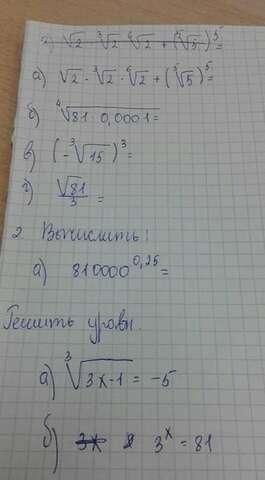 г) √2 · ³√2 · ⁶√2 + (⁵√5)⁵ =
а) √2 · ³√2 · ⁶√2 + (⁵√5)⁵ =
б) ⁴√81 · 0,0001 =
в) (-³√15)³ =
г) √81/3 =
2. Вычислить:
а) 810000^0,25 =
Решить уравн.
а) ³√3x-1 = -5
б) 3x 3ˣ = 81